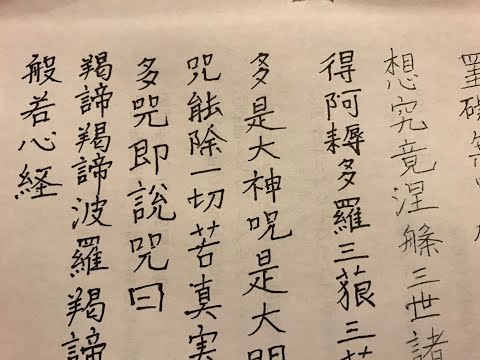 罣礙無
想究竟涅槃三世諸
得阿耨多羅三藐三菩
多是大神咒是大明
咒能除一切苦真実
多咒即説咒曰
羯諦羯諦波羅羯諦
般若心経